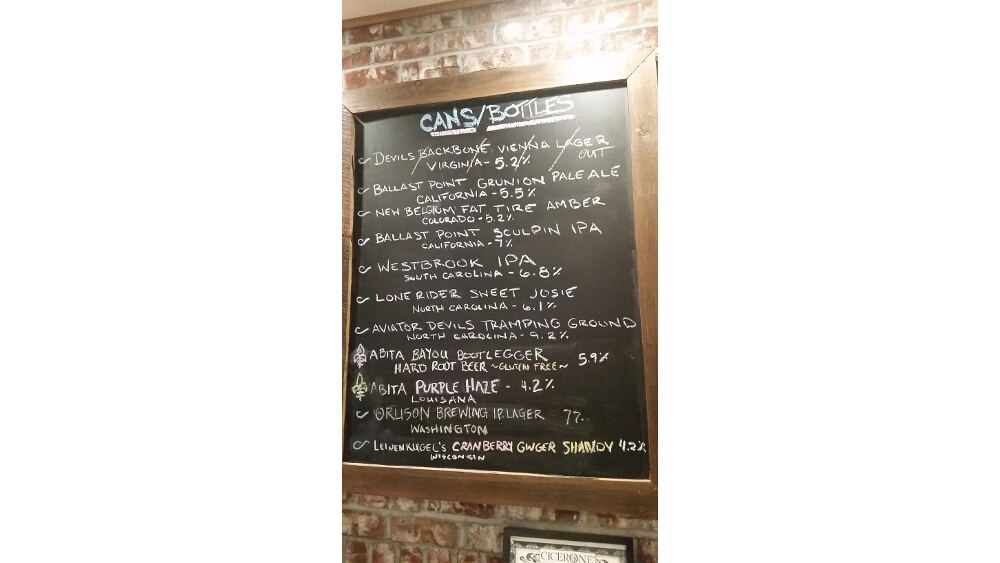 CANS/BOTTLES
DEVILS BACKBONE VIENNA LAGER
OUT
VIRGINIA - 5.2%
BALLAST POINT GRUNION PALE ALE
CALIFORNIA - 5.5%
NEW BELGIUM FAT TIRE AMBER
COLORADO - 5.2%
BALLAST POINT SCULPIN IPA
CALIFORNIA - 7%
WESTBROOK IPA
SOUTH CAROLINA - 6.8%
LONE RIDER SWEET JOSIE
NORTH CAROLINA - 6.1%
AVIATOR DEVILS TRAMPING GROUND
NORTH CAROLINA - 9.2%
ABITA BAYOU BOOTLEGGER 5.9%
HARD ROOT BEER ~GLUTEN FREE~
ABITA PURPLE HAZE - 4.2%
LOUISANA
ORLISON BREWING I.P.LAGER
WASHINGTON
LEINENKUGEL'S CRANBERRY GINGER SHANDY 4.2%
WISCONSIN
CICERONE